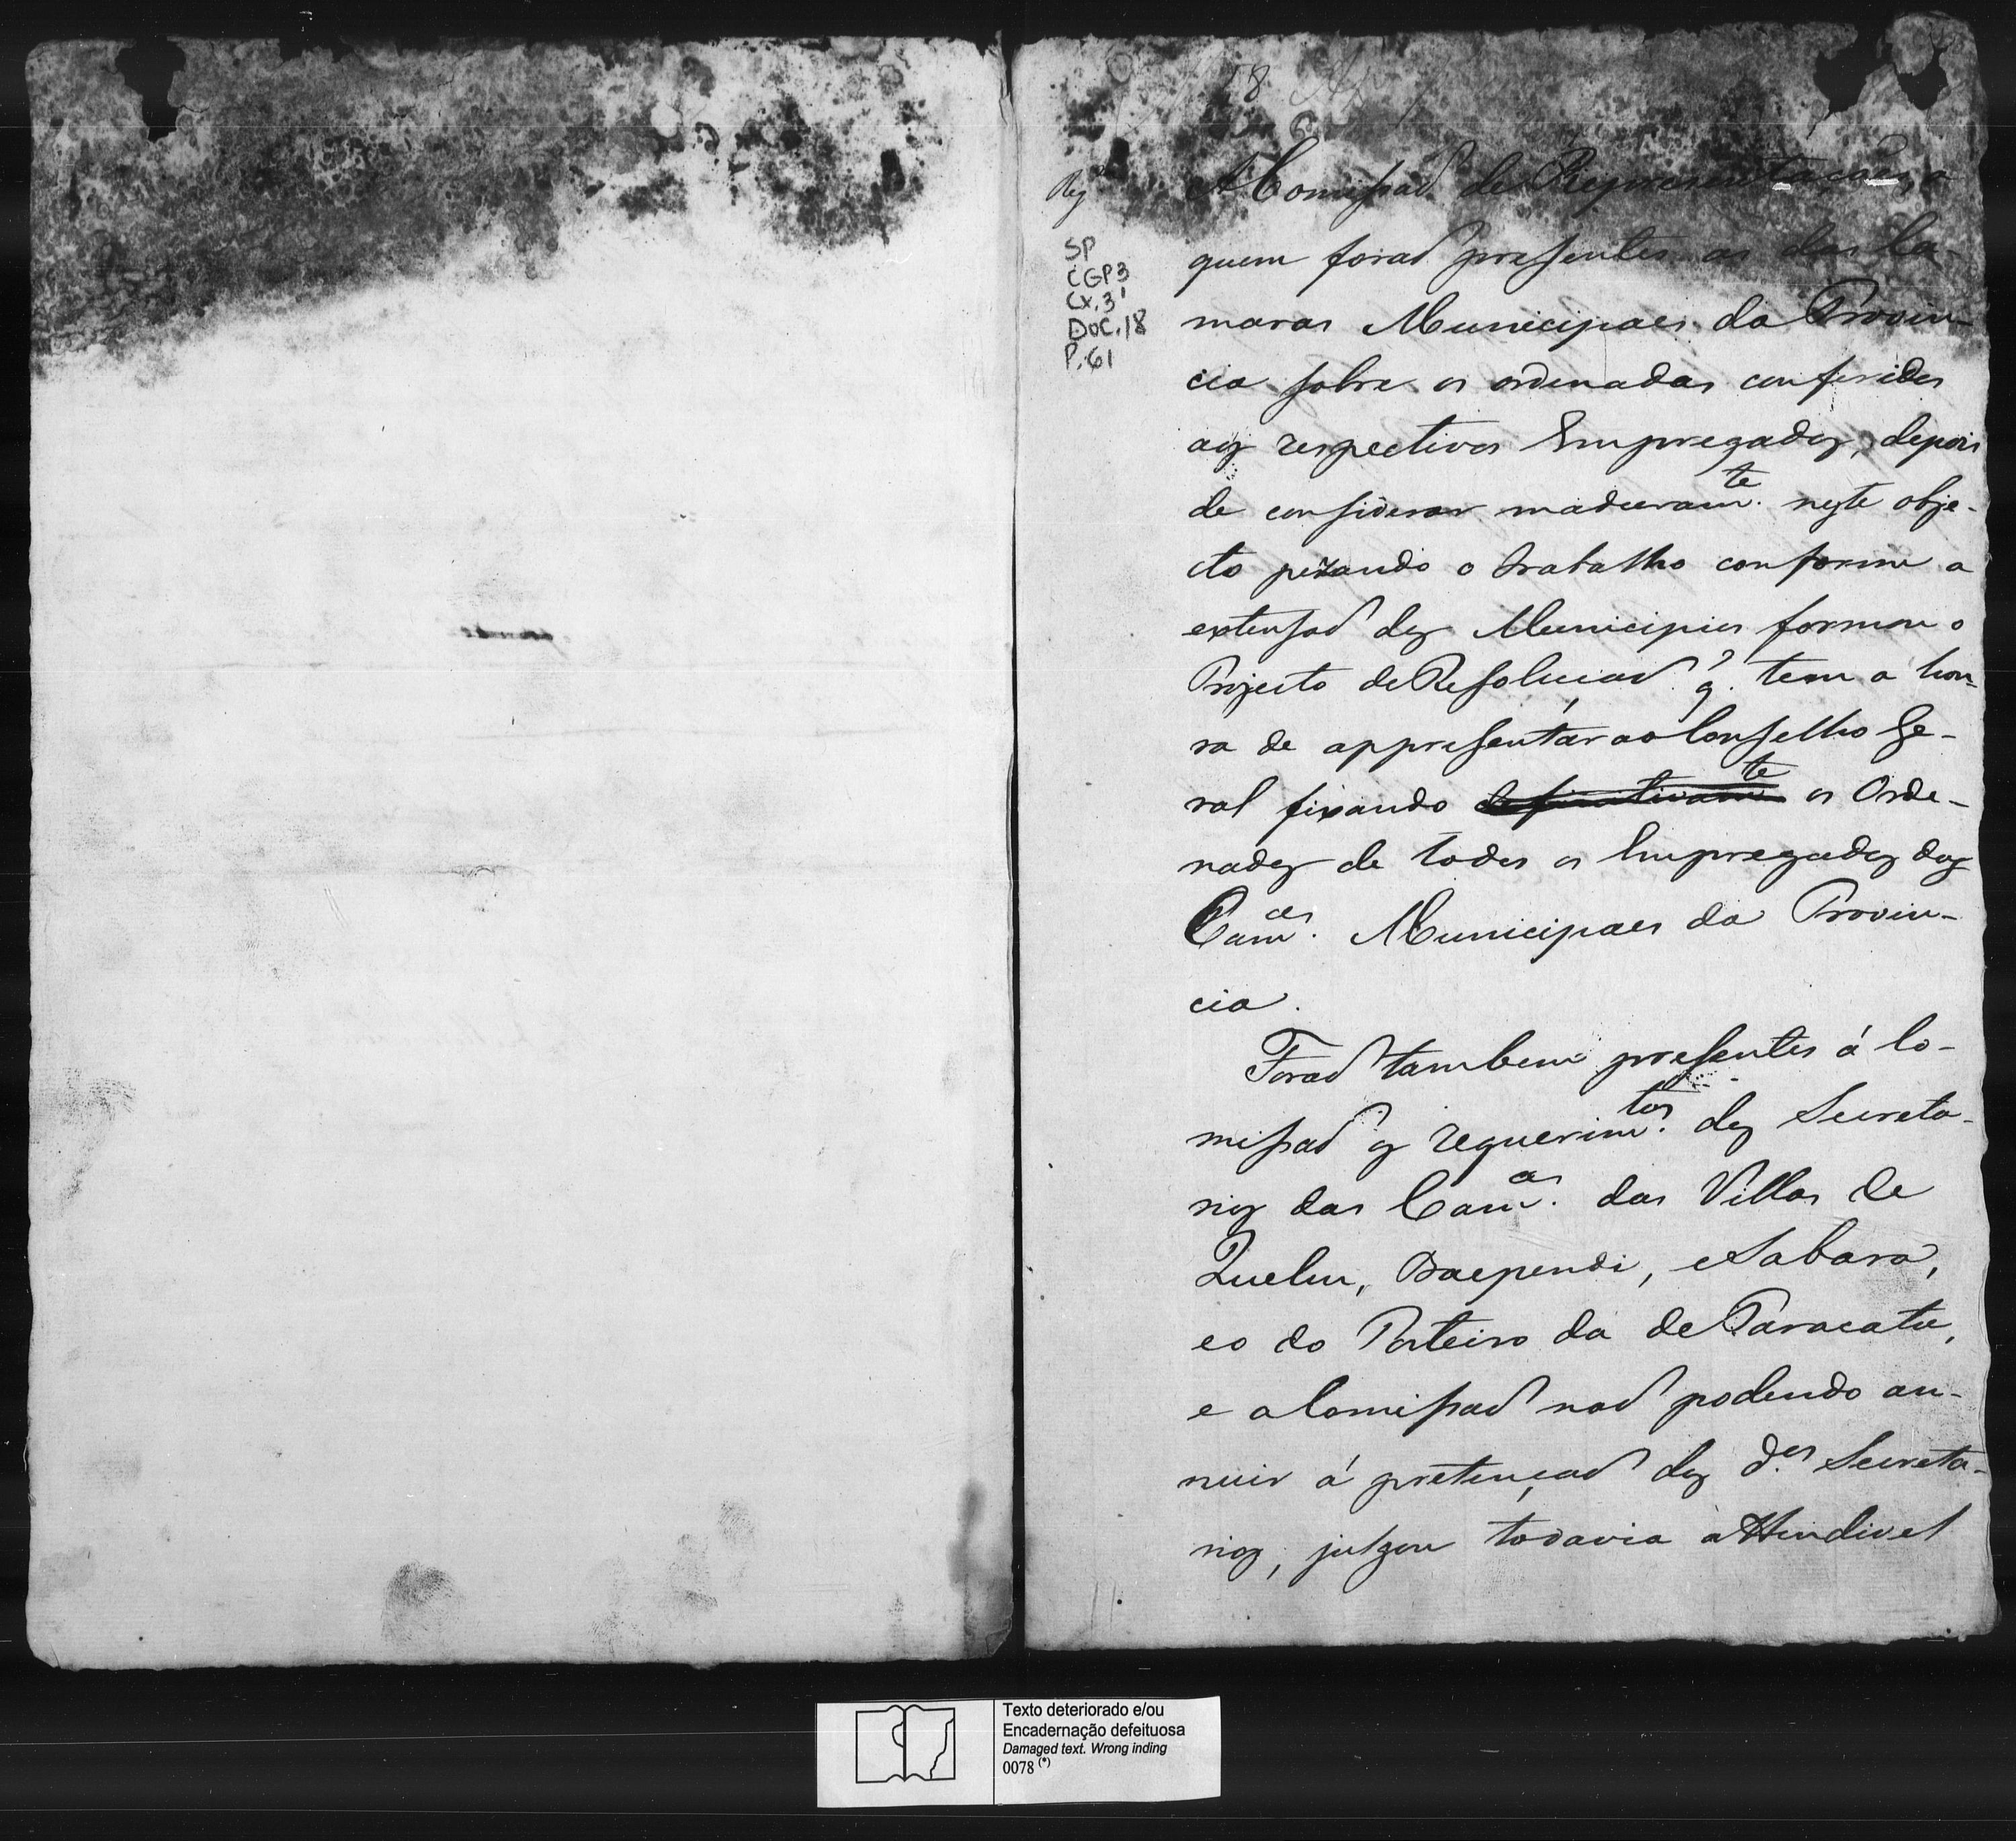 18
Reg
SP
CGP3
CX.31
DOC.18
P.61
A Comissaõ de Representaçoẽs, a
quem foraõ presentes as das Ca-
maras Municipaes da Provin-
cia sobre os ordenados conferidos
aos respectivos Empregados, depois
de considerar maduram.te neste obje-
cto pezando o trabalho conforme a
extensaõ dos Municipios formou o
Projecto de Resoluçaõ q. tem a hon-
ra de appresentar ao Conselho Ge-
ral fixando definitivam.te os Orde-
nados de todos os Empregados das
Cam.as Municipaes da Provin-
cia.
Foraõ tambem presentes á Co-
missaõ os requerim.tos dos Secreta-
rios das Cam.as das Villas de
Queluz, Baependi, e Sabara,
e o do Porteiro da de Paracatu,
e a Comissaõ naõ podendo an-
nuir á pretençaõ dos d.os Secreta-
rios, julgou todavia attendivel
Texto deteriorado e/ou
Encadernação defeituosa
Damaged text. Wrong inding
0078 (*)